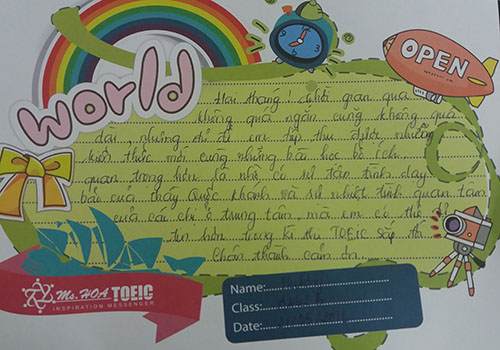 world
OPEN
Hai tháng! Thời gian qua
không quá ngắn cũng không quá
dài nhưng đủ để em tiếp thu được những
kiến thức mới cùng những bài học bổ ích
quan trọng hơn cả nhờ có sự tận tình dạy
bảo của thầy Quốc Khánh và sự nhiệt tình quan tâm
của các chị ở trung tâm, mà em có thể
tin hơn trong kì thi TOEIC sắp tới.
Chân thành cảm ơn.
Ms. HOA TOEIC
INSPIRATION MESSENGER
Name:
Class:
Date: